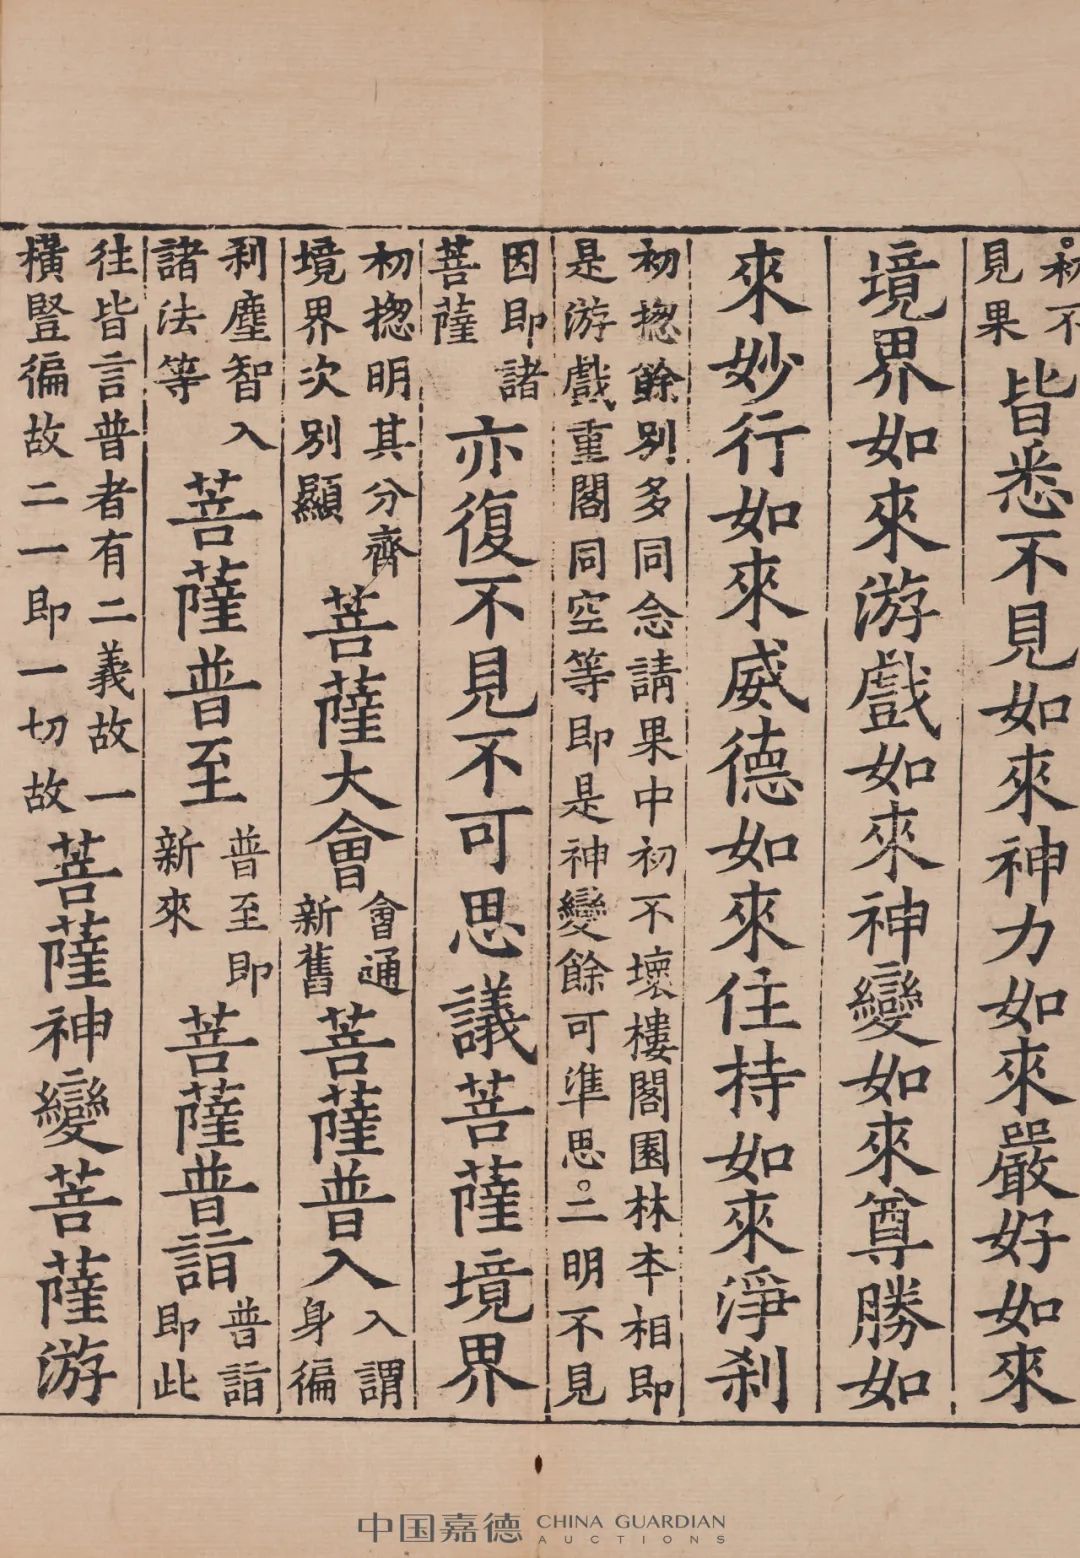 。初不
見果
皆悉不見如來神力如來嚴好如來
境界如來游戲如來神變如來尊勝如
來妙行如來威德如來住持如來淨刹
初揔餘別多同念請果中初不壞樓閣園林夲相即
是游戲重閣同空等即是神變餘可準思。二明不見
因即諸
菩薩
亦復不見不可思議菩薩境界
初揔明其分齊
境界次別顯
菩薩大會
會通
新舊
菩薩普入
入謂
身徧
刹塵智入
諸法等
菩薩普至
普至即
新來
菩薩普詣
普詣
即此
往皆言普者有二義故一
橫豎徧故二一即一切故
菩薩神變菩薩游
中国嘉德 CHINA GUARDIAN
AUCTIONS